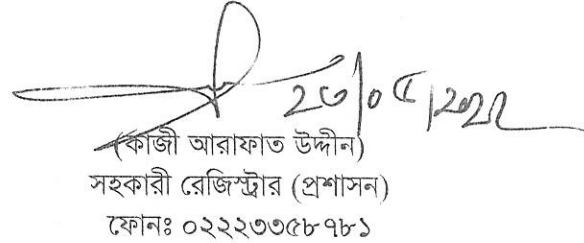 ২৩/০৫/২০২২
(কাজী আরাফাত উদ্দীন)
সহকারী রেজিস্ট্রার (প্রশাসন)
ফোনঃ ০২২২৩৩৫৮৭৮১